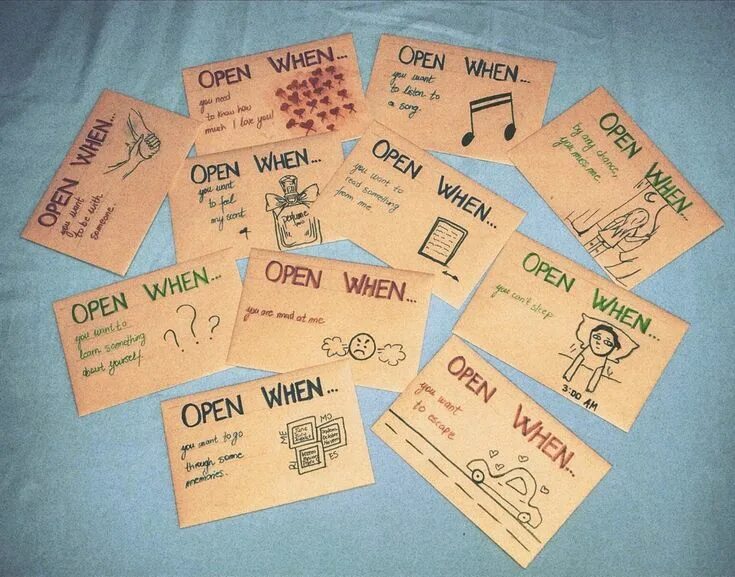 OPEN WHEN...
you need
to know how
much I love you!
OPEN WHEN...
you want
to listen to
a song.
OPEN WHEN...
you want
to be with
someone.
OPEN WHEN...
you want
to feel
my scent
perfume
OPEN WHEN...
you want to
read something
from me.
OPEN WHEN...
by any chance,
you miss me.
OPEN WHEN...
you want to
learn something
about yourself.
? ? ?
OPEN WHEN...
you are mad at me
OPEN WHEN...
you can't sleep
3:00 AM
OPEN WHEN...
you want to go
through some
memories.
ME
MO
RI
ES
OPEN WHEN...
you want
to escape